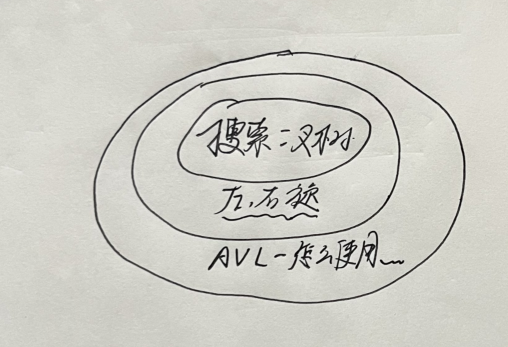 搜索二叉树
左、右旋
AVL-怎么使用...